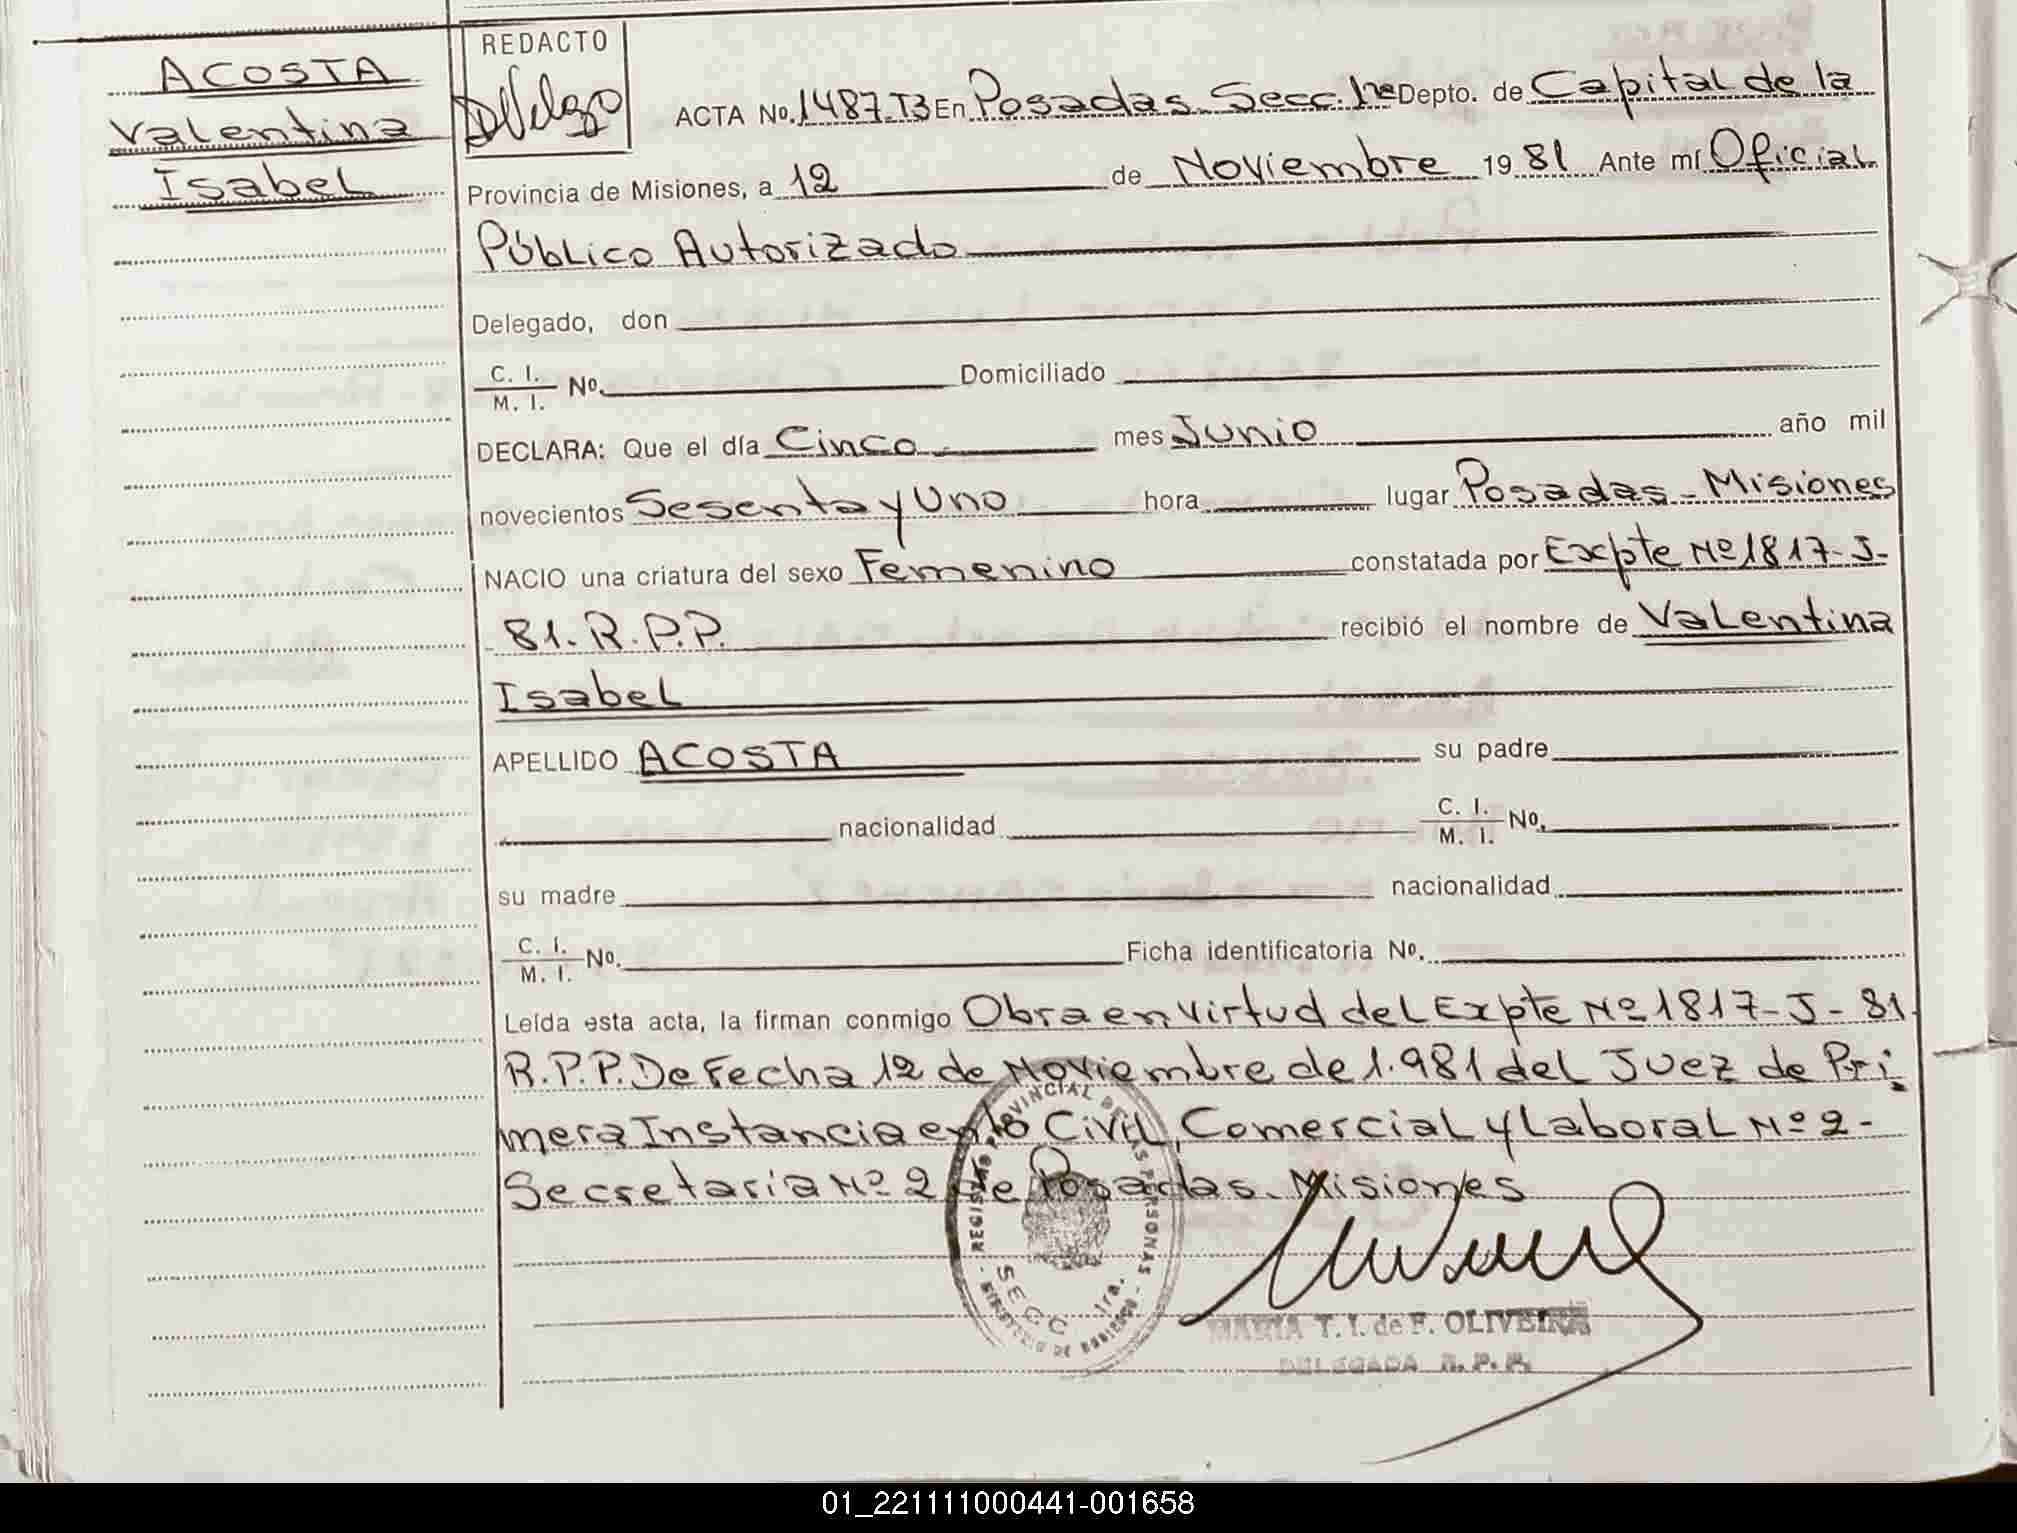 ACOSTA
Valentina
Isabel
REDACTO
ACTA No. 1487-T3 En Posadas Secc. 1ra Depto. de Capital de la
Provincia de Misiones, a 12 de Noviembre 1981 Ante mí Oficial
Público Autorizado
Delegado, don
C. I.
M. I. No. Domiciliado
DECLARA: Que el día Cinco mes Junio año mil
novecientos Sesenta y Uno hora lugar Posadas - Misiones
NACIO una criatura del sexo Femenino constatada por Expte Nº 1817-J-
81-R.P.P. recibió el nombre de Valentina
Isabel
APELLIDO ACOSTA su padre
nacionalidad C. I.
M. I. No.
su madre nacionalidad
C. I.
M. I. No. Ficha identificatoria No.
Leída esta acta, la firman conmigo Obra en virtud del Expte Nº 1817-J-81
R.P.P. De Fecha 12 de Noviembre de 1.981 del Juez de Pri
mera Instancia en lo Civil, Comercial y Laboral Nº 2-
Secretaria Nº 2 de Posadas. Misiones
REGISTRO PROVINCIAL DE LAS PERSONAS
SECC. 1ra.
MINISTERIO DE GOBIERNO
MARIA T. I. de F. OLIVEIRA
DELEGADA R. P. P.
01_221111000441-001658